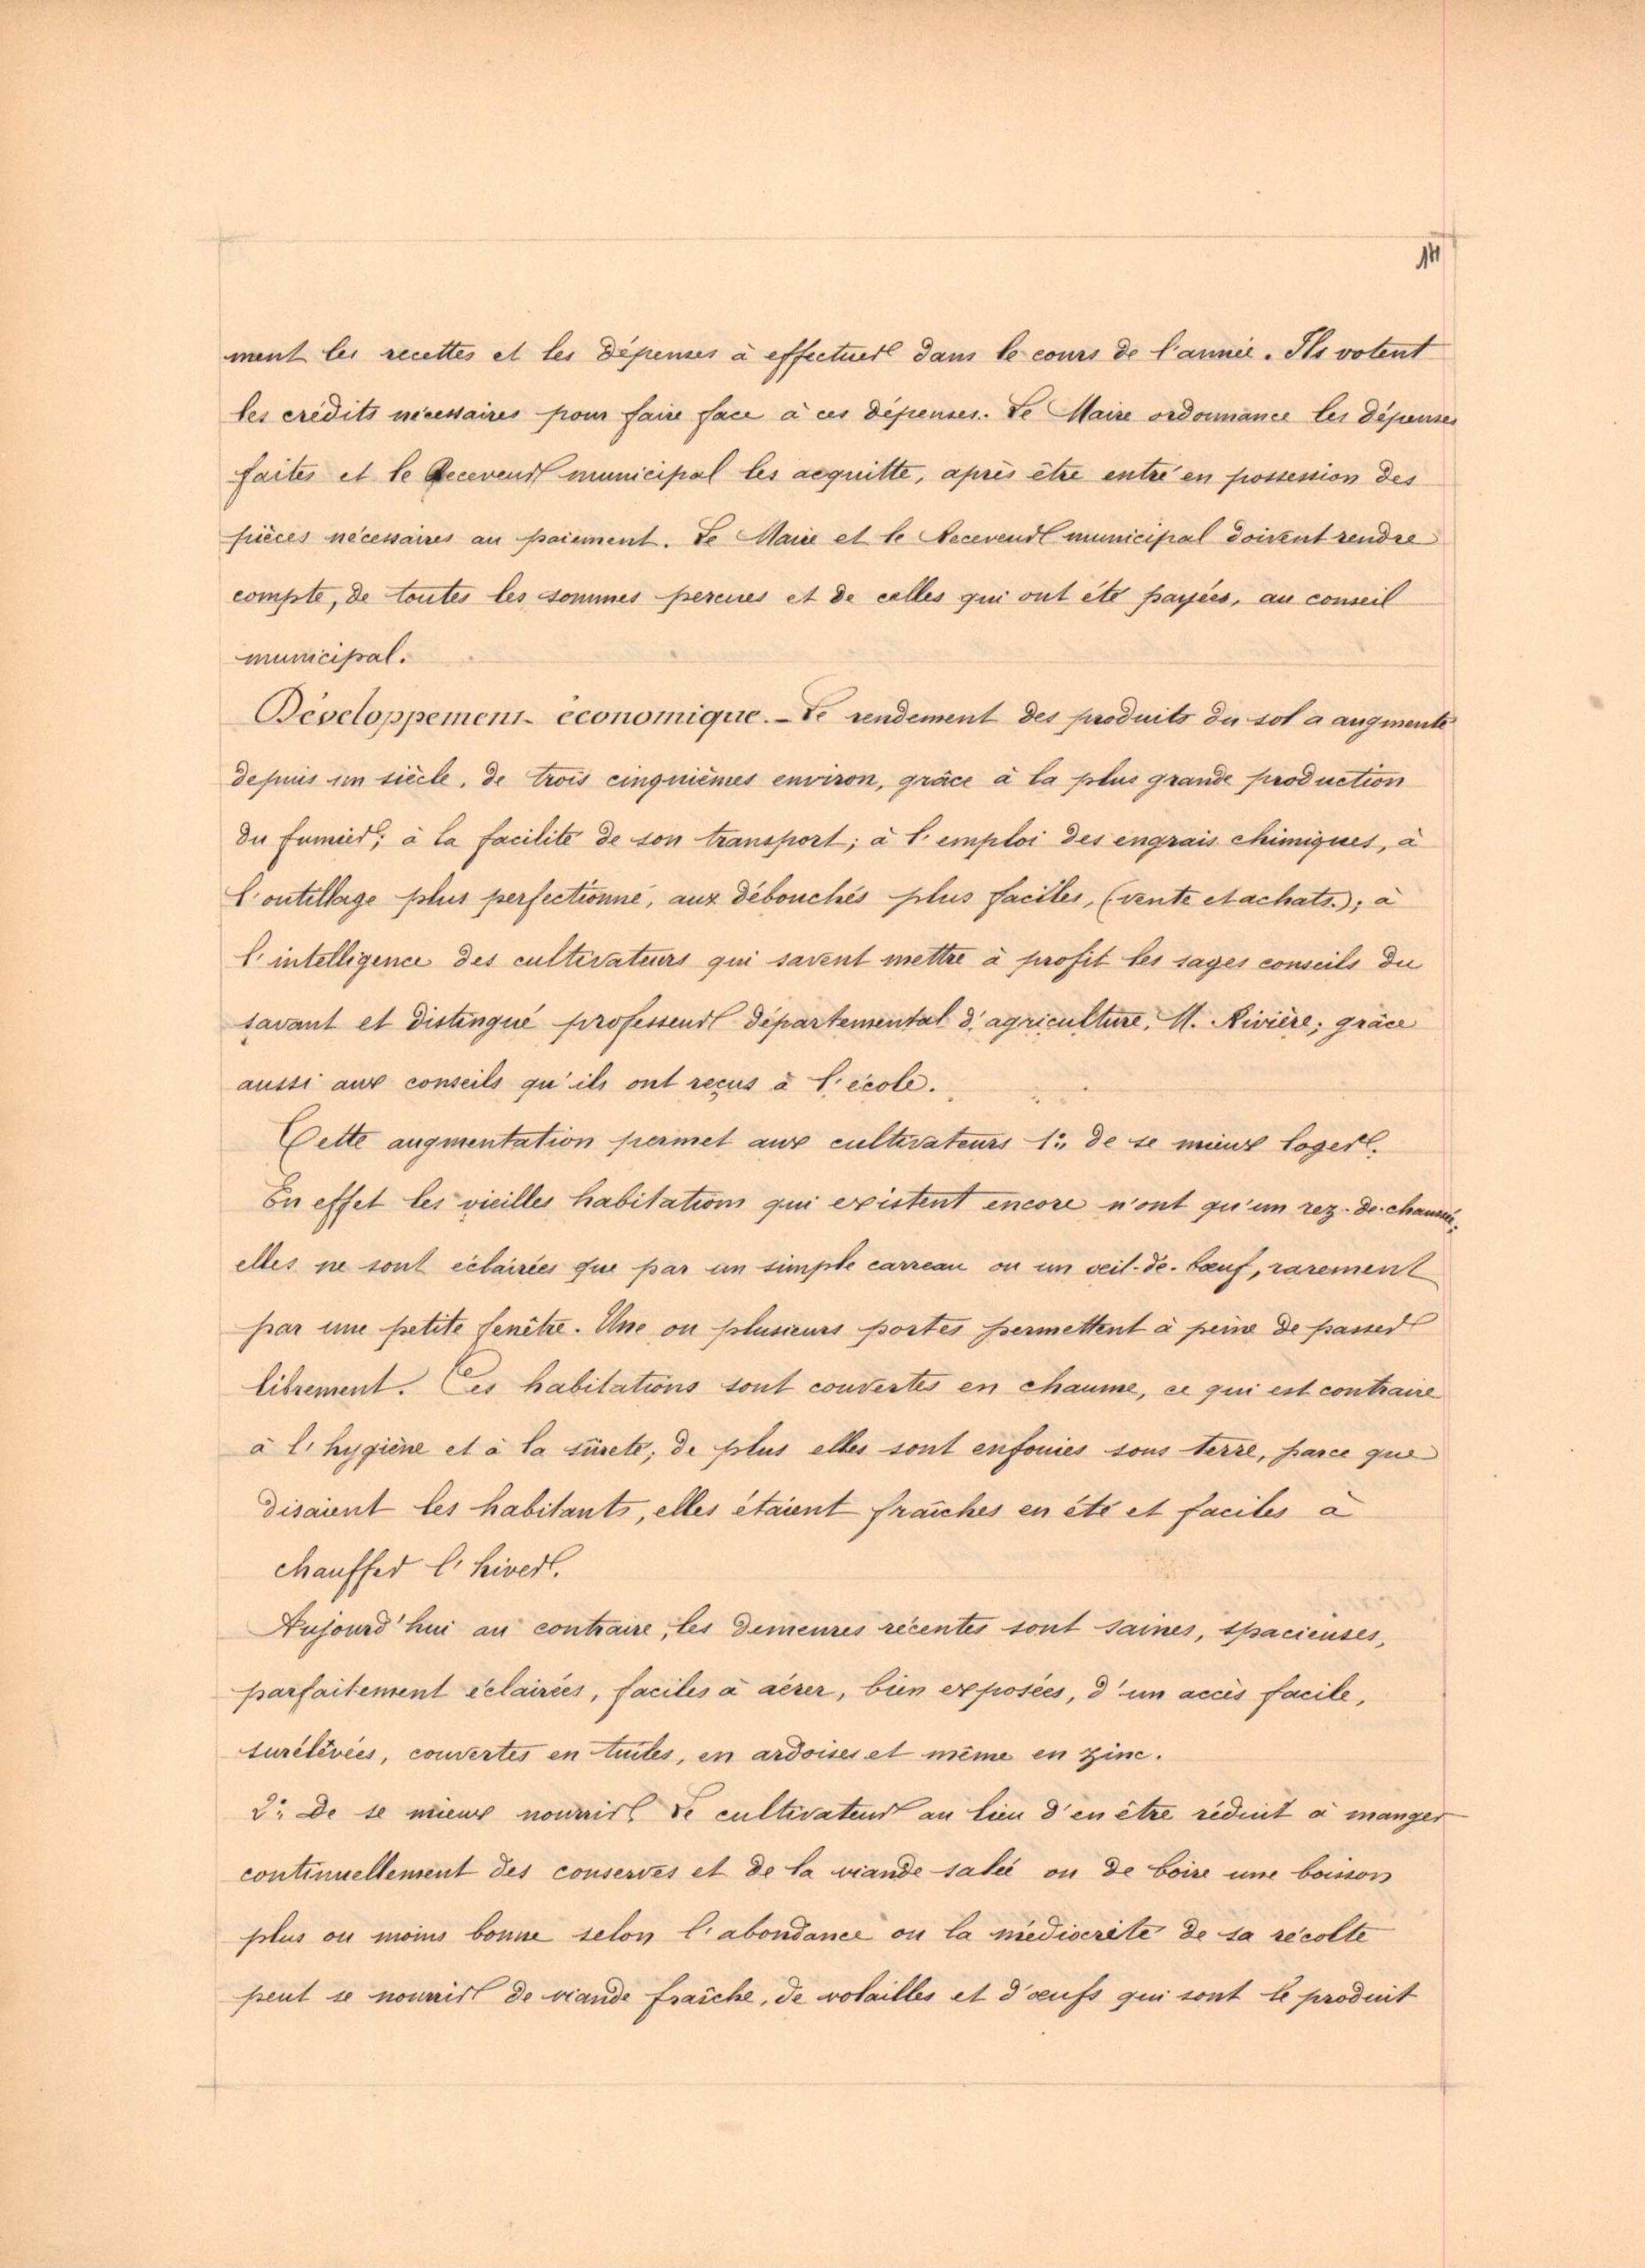 ment les recettes et les dépenses à effectuer dans le cours de l'année. Ils votent
les crédits nécessaires pour faire face à ces dépenses. Le Maire ordonnance les dépenses
faites et le Receveur municipal les acquitte, après être entré en possession des
pièces nécessaires au paiement. Le Maire et le Receveur municipal doivent rendre
compte, de toutes les sommes percues et de celles qui ont été payées, au conseil
municipal.
Développement économique. - Le rendement des produits du sol a augmenté
depuis un siècle, de trois cinquièmes environ, grâce à la plus grande production
du fumier; à la facilité de son transport; à l'emploi des engrais chimiques, à
l'outillage plus perfectionné, aux débouchés plus faciles, (vente et achats.); à
l'intelligence des cultivateurs qui savent mettre à profit les sages conseils du
savant et distingué professeur départemental d'agriculture, M. Rivière; grâce
aussi aux conseils qu'ils ont reçus à l'école.
Cette augmentation permet aux cultivateurs 1° de se mieux loger.
En effet les vieilles habitations qui existent encore n'ont qu'un rez-de-chaussée,
elles ne sont éclairées que par un simple carreau ou un oeil-de-boeuf, rarement
par une petite fenêtre. Une ou plusieurs portes permettent à peine de passer
librement. Ces habitations sont couvertes en chaume, ce qui est contraire
à l'hygiène et à la sûreté; de plus elles sont enfouies sous terre, parce que
disaient les habitants, elles étaient fraîches en été et faciles à
chauffer l'hiver.
Aujourd'hui au contraire, les demeures récentes sont saines, spacieuses,
parfaitement éclairées, faciles à aérer, bien exposées, d'un accès facile,
surélévées, couvertes en tuiles, en ardoises et même en zinc.
2° De se mieux nourrir. Le cultivateur au lieu d'en être réduit à manger
continuellement des conserves et de la viande salée ou de boire une boisson
plus ou moins bonne selon l'abondance ou la médiocrité de sa récolte
peut se nourrir de viande fraîche, de volailles et d'œufs qui sont le produit